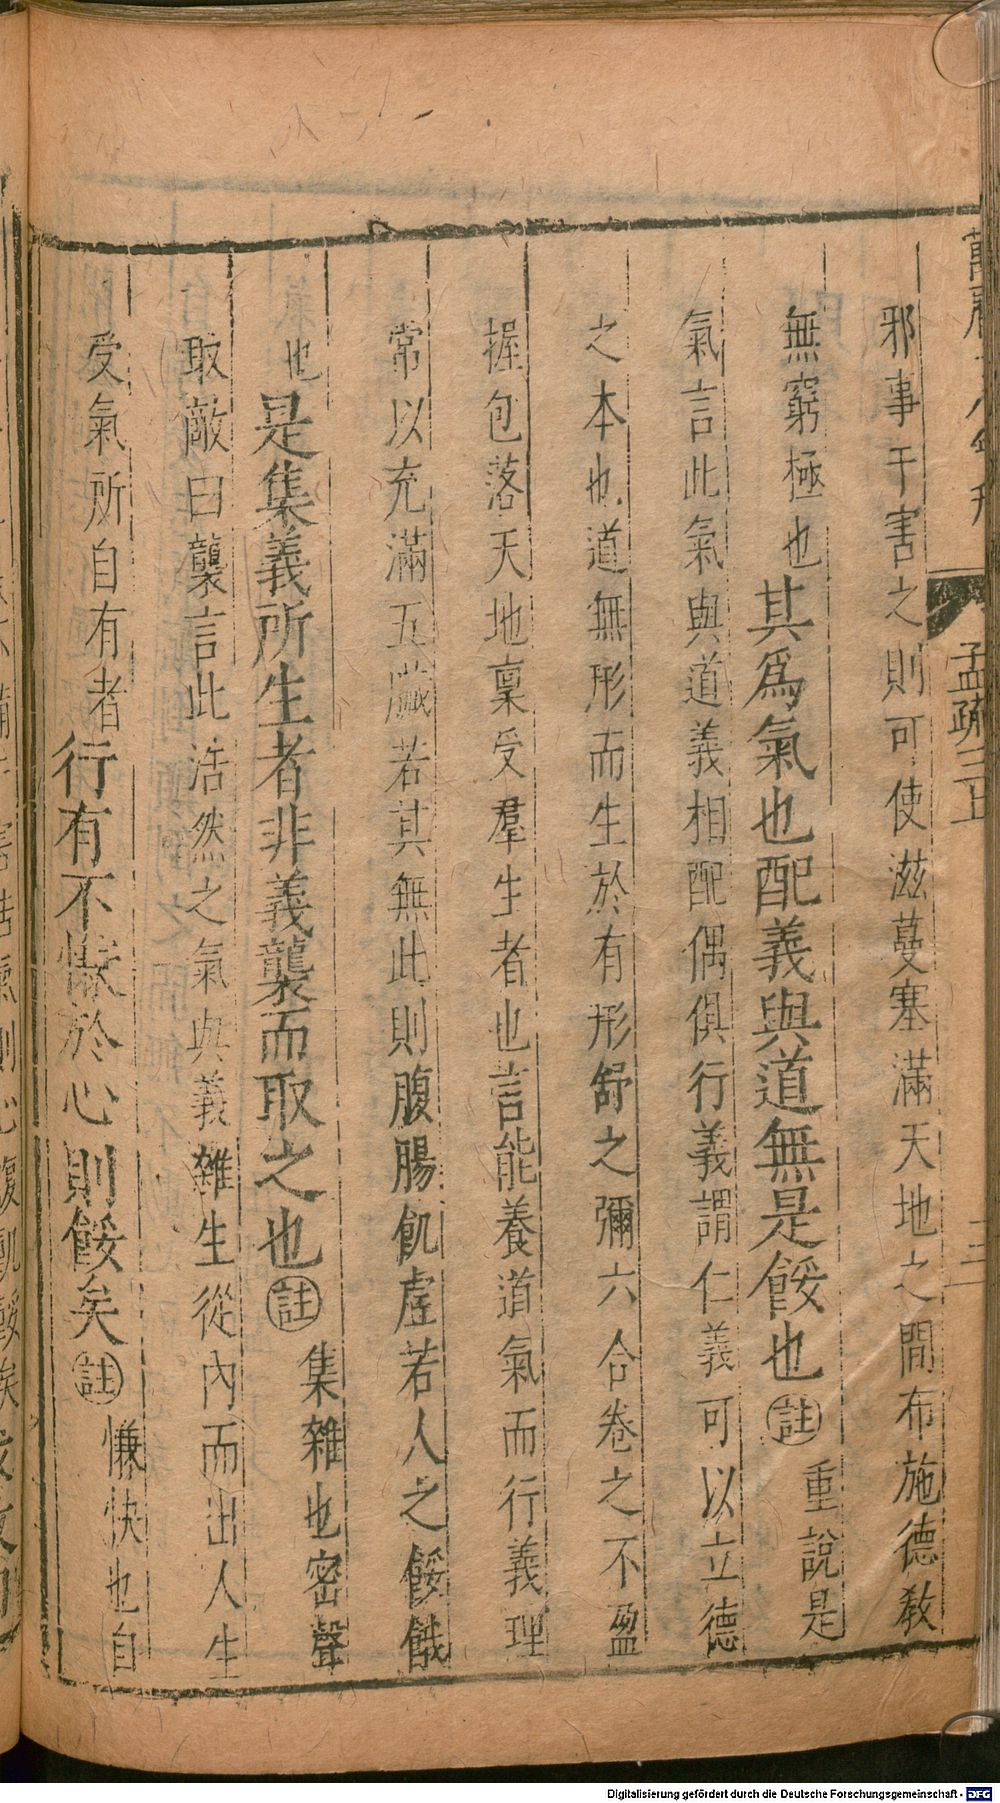 邪事干害之則可使滋蔓塞滿天地之間布施德敎
無窮極也其爲氣也配義與道無是餒也註重說是
氣言此氣與道義相配偶俱行義謂仁義可以立德
之本也道無形而生於有形舒之彌六合卷之不盈
握包落天地稟受羣生者也言能養道氣而行義理
常以充滿五臟若其無此則腹腸飢虛若人之餒餓
也是集義所生者非義襲而取之也註集雜也密聲
取敵曰襲言此浩然之氣與義雜生從內而出人生
受氣所自有者行有不慊於心則餒矣註慊快也自
孟疏三上
Digitalisierung gefördert durch die Deutsche Forschungsgemeinschaft - DFG